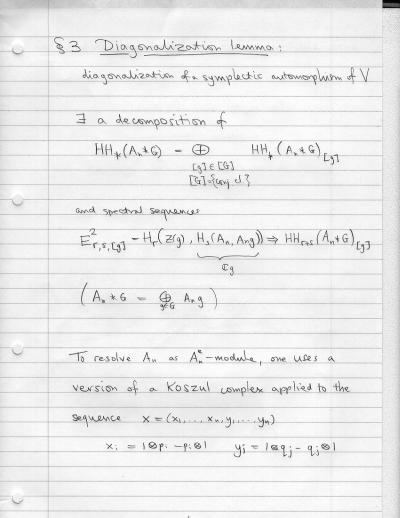 §3 Diagonalization lemma:
diagonalization of a symplectic automorphism of V
∃ a decomposition of
HH_*(A_n*G) - ⊕ HH_*(A_n*G)_[g]
[g]∈[G]
[G]={conj. cl.}
and spectral sequences
E²_{r,s,[g]} - H_r(Z(g), H_s(A_n, A_n g)) ⇒ HH_{r+s}(A_n*G)_[g]
ℂg
(A_n*G = ⊕_{g∈G} A_n g)
To resolve A_n as A_n^e-module, one uses a
version of a Koszul complex applied to the
sequence x = (x_1, ..., x_n, y_1, ... y_n)
x_i = 1⊗p_i - p_i⊗1 y_j = 1⊗q_j - q_j⊗1